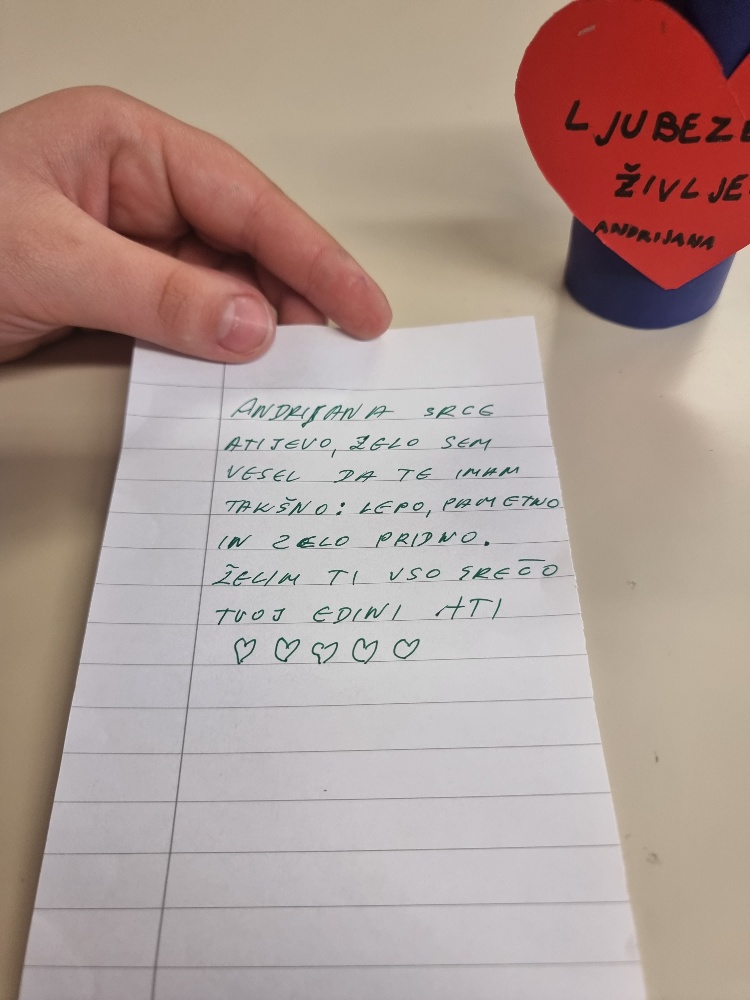 LJUBEZE
ŽIVLJE
ANDRIJANA
ANDRIJANA SRCE
ATIJEVO, ZELO SEM
VESEL DA TE IMAM
TAKŠNO: LEPO, PAMETNO
IN ZELO PRIDNO.
ŽELIM TI VSO SREČO
TVOJ EDINI ATI
♡ ♡ ♡ ♡ ♡